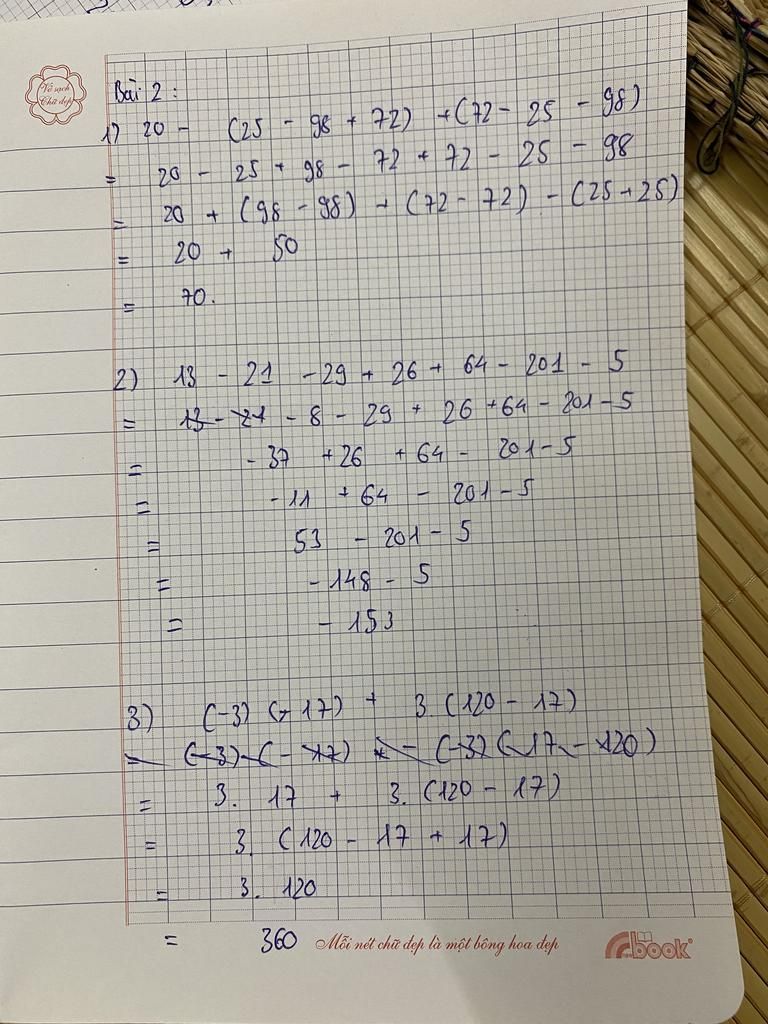 Vở sạch
Chữ đẹp
Bài 2 :
1) 20 - (25 - 98 + 72) + (72 - 25 - 98)
= 20 - 25 + 98 - 72 + 72 - 25 - 98
= 20 + (98 - 98) + (72 - 72) - (25 + 25)
= 20 + 50
= 70.
2) 13 - 21 - 29 + 26 + 64 - 201 - 5
= 13 - 21 - 8 - 29 + 26 + 64 - 201 - 5
= - 37 + 26 + 64 - 201 - 5
= - 11 + 64 - 201 - 5
= 53 - 201 - 5
= - 148 - 5
= - 153
3) (-3) (-17) + 3. (120 - 17)
= (-3) - (- 17) - (-3) (-17 - 120)
= 3. 17 + 3. (120 - 17)
= 3. (120 - 17 + 17)
= 3. 120
= 360
Mỗi nét chữ đẹp là một bông hoa đẹp
book